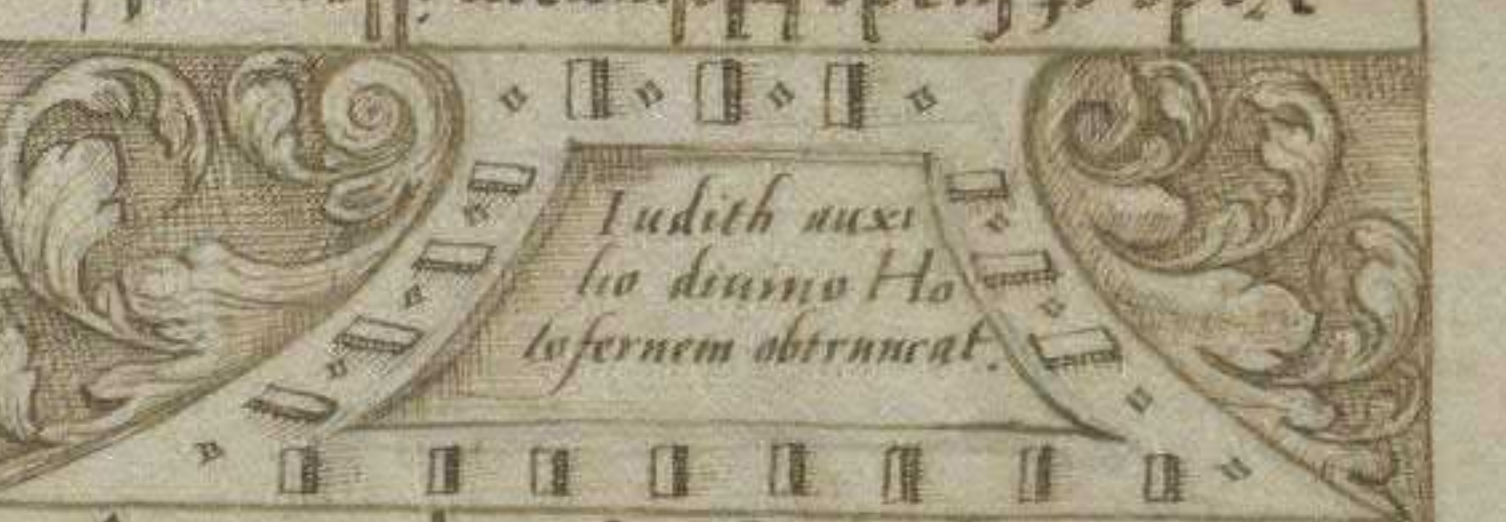 Iudith auxi
lio diuino Ho
lofernem obtruncat.